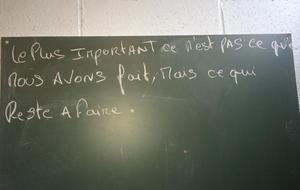 Le Plus IMPORTANT ce n'est PAS ce que
NOUS AVONS fait, Mais ce qui
Reste A Faire.